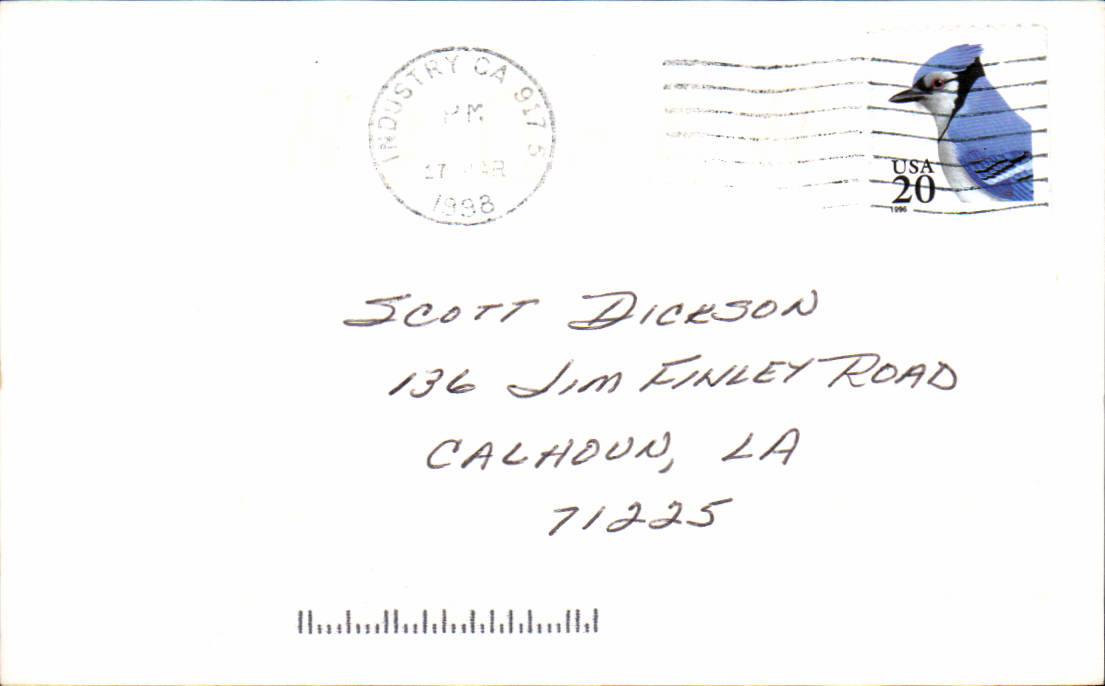 INDUSTRY CA 917 5
PM
1998
USA
20
1996
SCOTT DICKSON
136 JIM FINLEY ROAD
CALHOUN, LA
71225